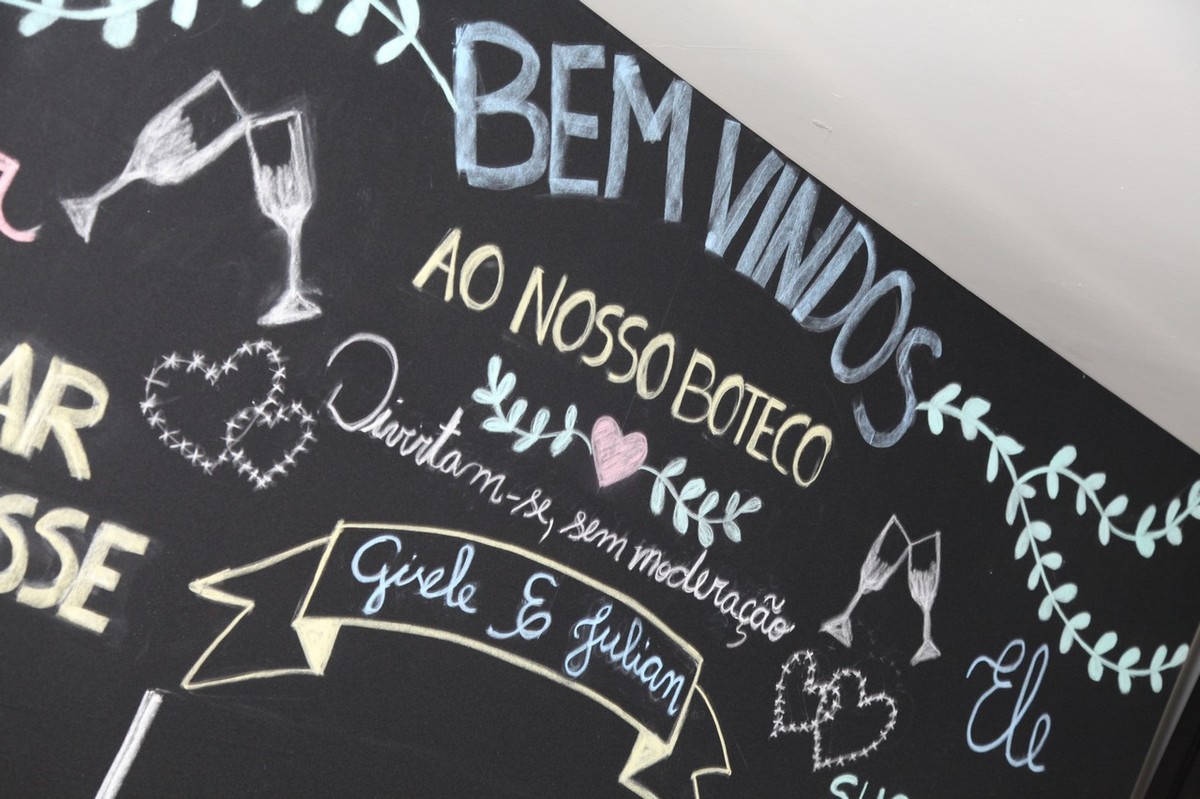 BEM VINDOS
AO NOSSO BOTECO
Divirtam-se, sem moderação
Gisele & Julian
AR
SSE
Ele